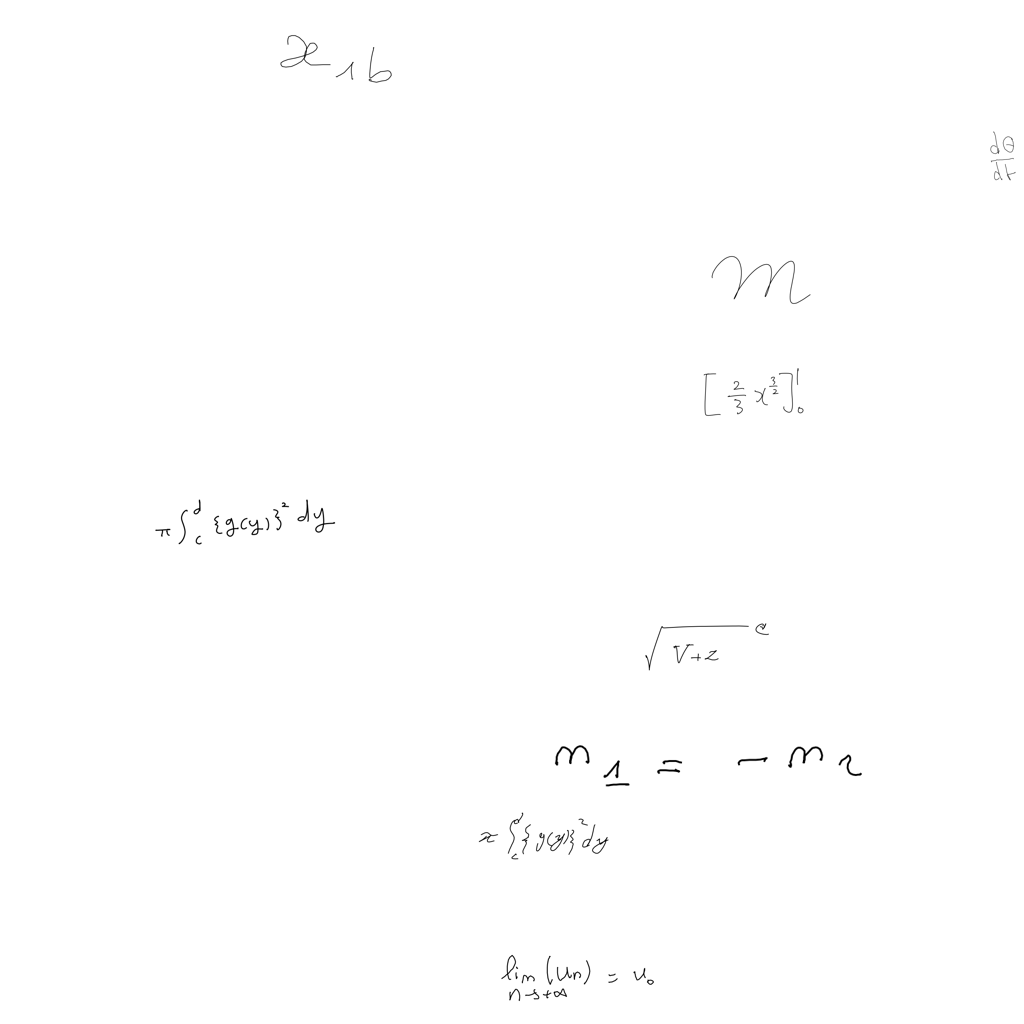 x₁b
dθ/dt
m
[2/3 x^{3/2}]₀¹
π∫_c^d {g(y)}² dy
√(V+z) c
m₁ = -m₂
π∫_c^d {g(y)}² dy
lim_{n→+∞} (uₙ) = u₀